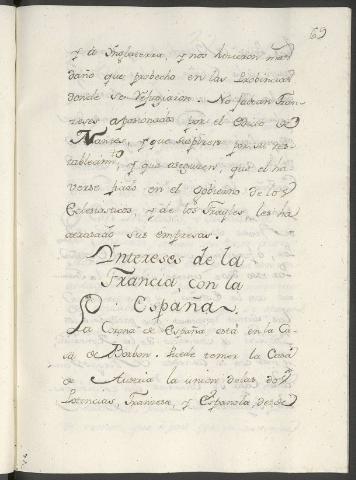 69
y la Inglaterra, y nos hicieron mas
daño que probecho en las Probincias
donde se refugiaron. No faltan Fran-
zeses apasionados por el Edicto de
Nantes, y que suspiren por su res-
tablecimto, y que aseguren, que el ha-
verse fiado en el Gobierno de los
Eclesiasticos, y de los Frayles les ha
atrasado sus empresas.
Intereses de la
Francia, con la
España.
La Corona de España está en la Ca-
sa de Borbon. Puede temer la Casa
de Austria la union de las dos
Potencias, Francesa, y Española, desde